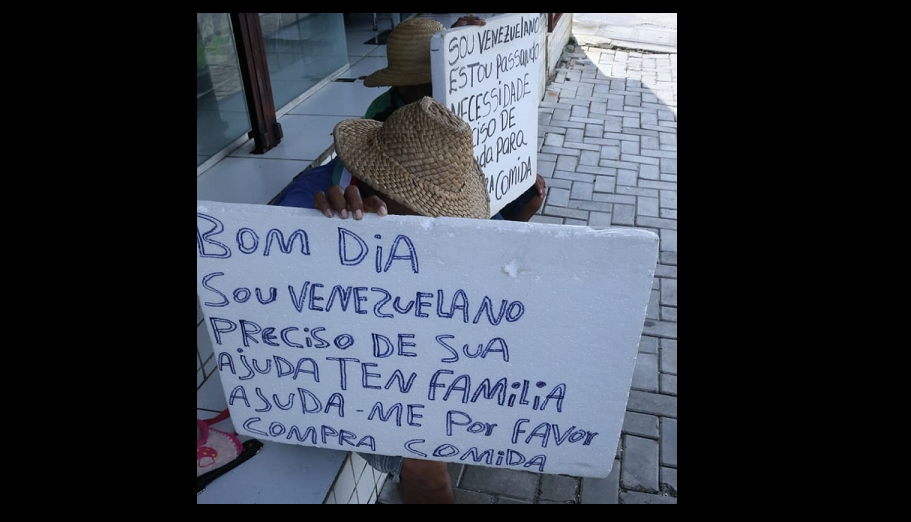 SOU VENEZUELANO
ESTOU PASSANDO
NECESSIDADE
DE
PARA
COMIDA
BOM DIA
SOU VENEZUELANO
PRECISO DE SUA
AJUDA TEN FAMILIA
ASUDA-ME POR FAVOR
COMPRA COMIDA